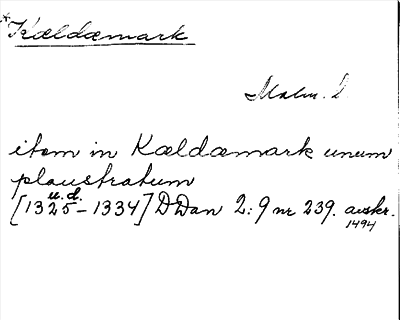 *Kældæmark
Malm. L.
item in Kældæmark unum
plaustratum
u.d.
[1325-1334] DDan 2:9 nr 239. avskr.
1494